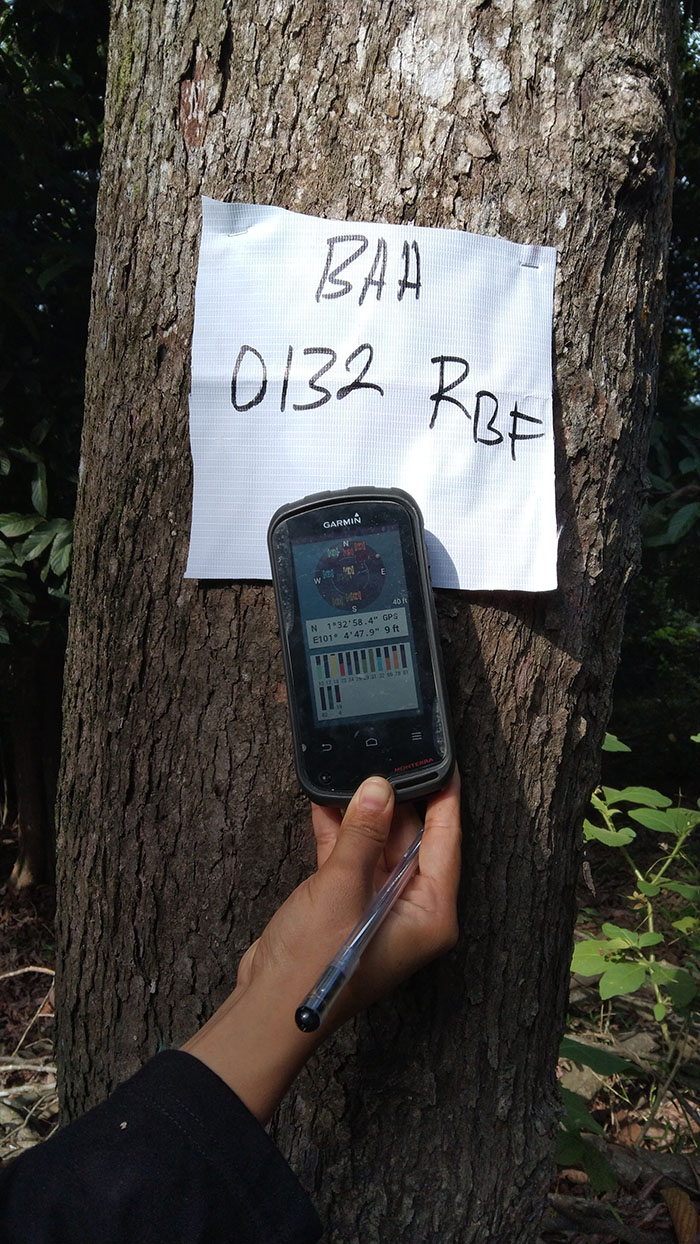 BAH
0132 RBF
GARMIN
N
W E
S
40 ft
N 1°32'58.4" GPS
E101° 4'47.9" 9 ft
MONTERRA